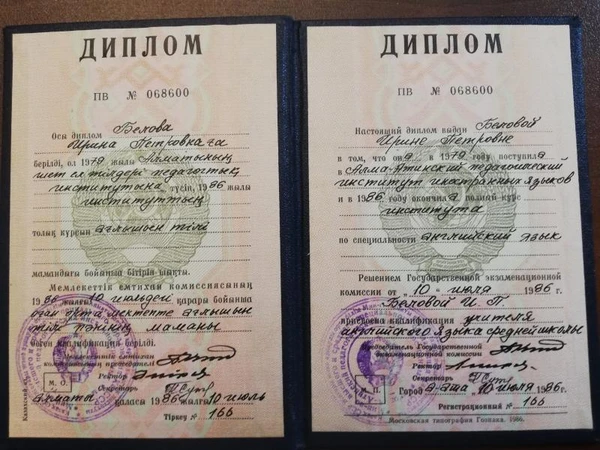 ДИПЛОМ
ПВ № 068600
Осы диплом Белова
Ирина Петровнаға
берілді, ол 1979 жылы Алматының
шет ел тілдері педагогтық
институтына түсіп, 1986 жылы
институттың
толық курсын ағылшын тілі
мамандығы бойынша бітіріп шықты.
Мемлекеттік емтихан комиссиясының
1986 жылғы 10 июльдегі қарары бойынша
оған орта мектепте ағылшын
тілі пәнінің маманы
деген квалификация берілді.
Мемлекеттік емтихан
комиссиясының председателі
Ректор
Секретарь
М. О.
Алматы қаласы 1986 жылғы 10 июль
Тіркеу № 166
ДИПЛОМ
ПВ № 068600
Настоящий диплом выдан Беловой
Ирине Петровне
в том, что она в 1979 году поступила
в Алма-Атинский педагогический
институт иностранных языков
и в 1986 году окончила полный курс
института
по специальности английский язык
Решением Государственной экзаменационной
комиссии от „10“ июля 1986 г.
Беловой И. П.
присвоена квалификация учителя
английского языка средней школы
Председатель Государственной
экзаменационной комиссии
Ректор
Секретарь
М. П.
Город А-Ата 10 июля 1986 г.
Регистрационный № 166
Московская типография Гознака. 1986.